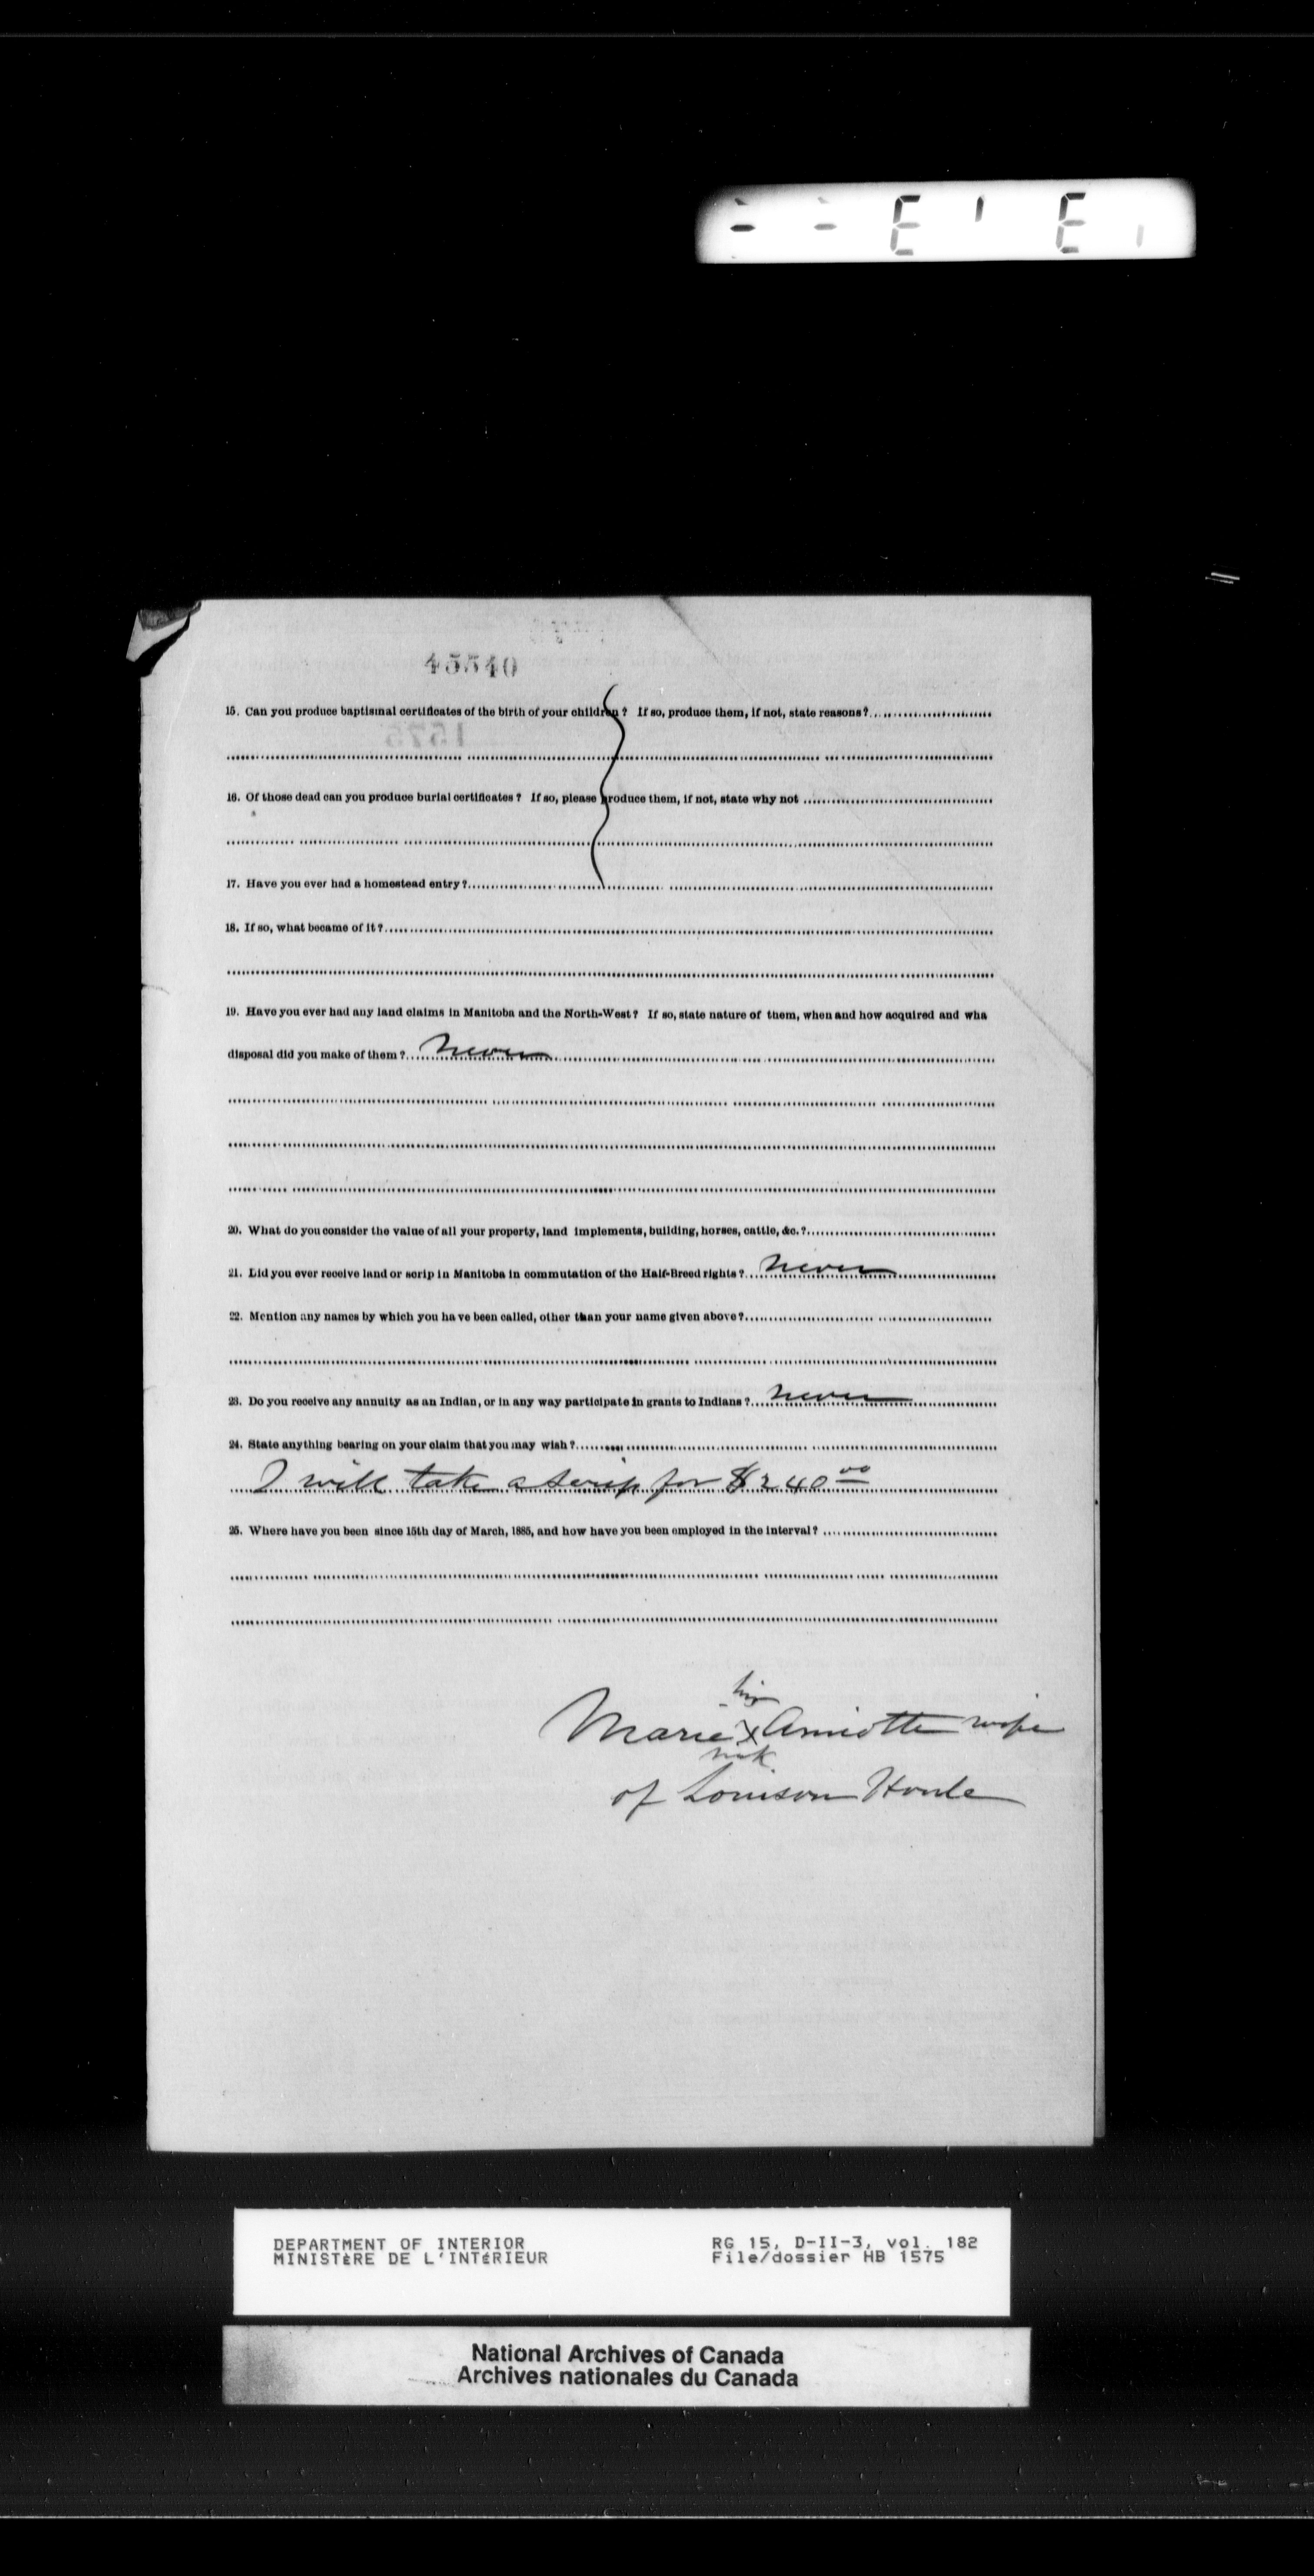 45540
15. Can you produce baptismal certificates of the birth of your children? If so, produce them, if not, state reasons?
1575
16. Of those dead can you produce burial certificates? If so, please produce them, if not, state why not
17. Have you ever had a homestead entry?
18. If so, what became of it?
19. Have you ever had any land claims in Manitoba and the North-West? If so, state nature of them, when and how acquired and wha
disposal did you make of them? Never
20. What do you consider the value of all your property, land implements, building, horses, cattle, &c.?
21. Did you ever receive land or scrip in Manitoba in commutation of the Half-Breed rights? Never
22. Mention any names by which you have been called, other than your name given above?
23. Do you receive any annuity as an Indian, or in any way participate in grants to Indians? Never
24. State anything bearing on your claim that you may wish?
I will take a scrip for $240 00
25. Where have you been since 15th day of March, 1885, and how have you been employed in the interval?
Marie X Amiotte wife
mk
of Louison Houle
DEPARTMENT OF INTERIOR RG 15, D-II-3, vol. 182
MINISTÈRE DE L'INTÉRIEUR File/dossier HB 1575
National Archives of Canada
Archives nationales du Canada